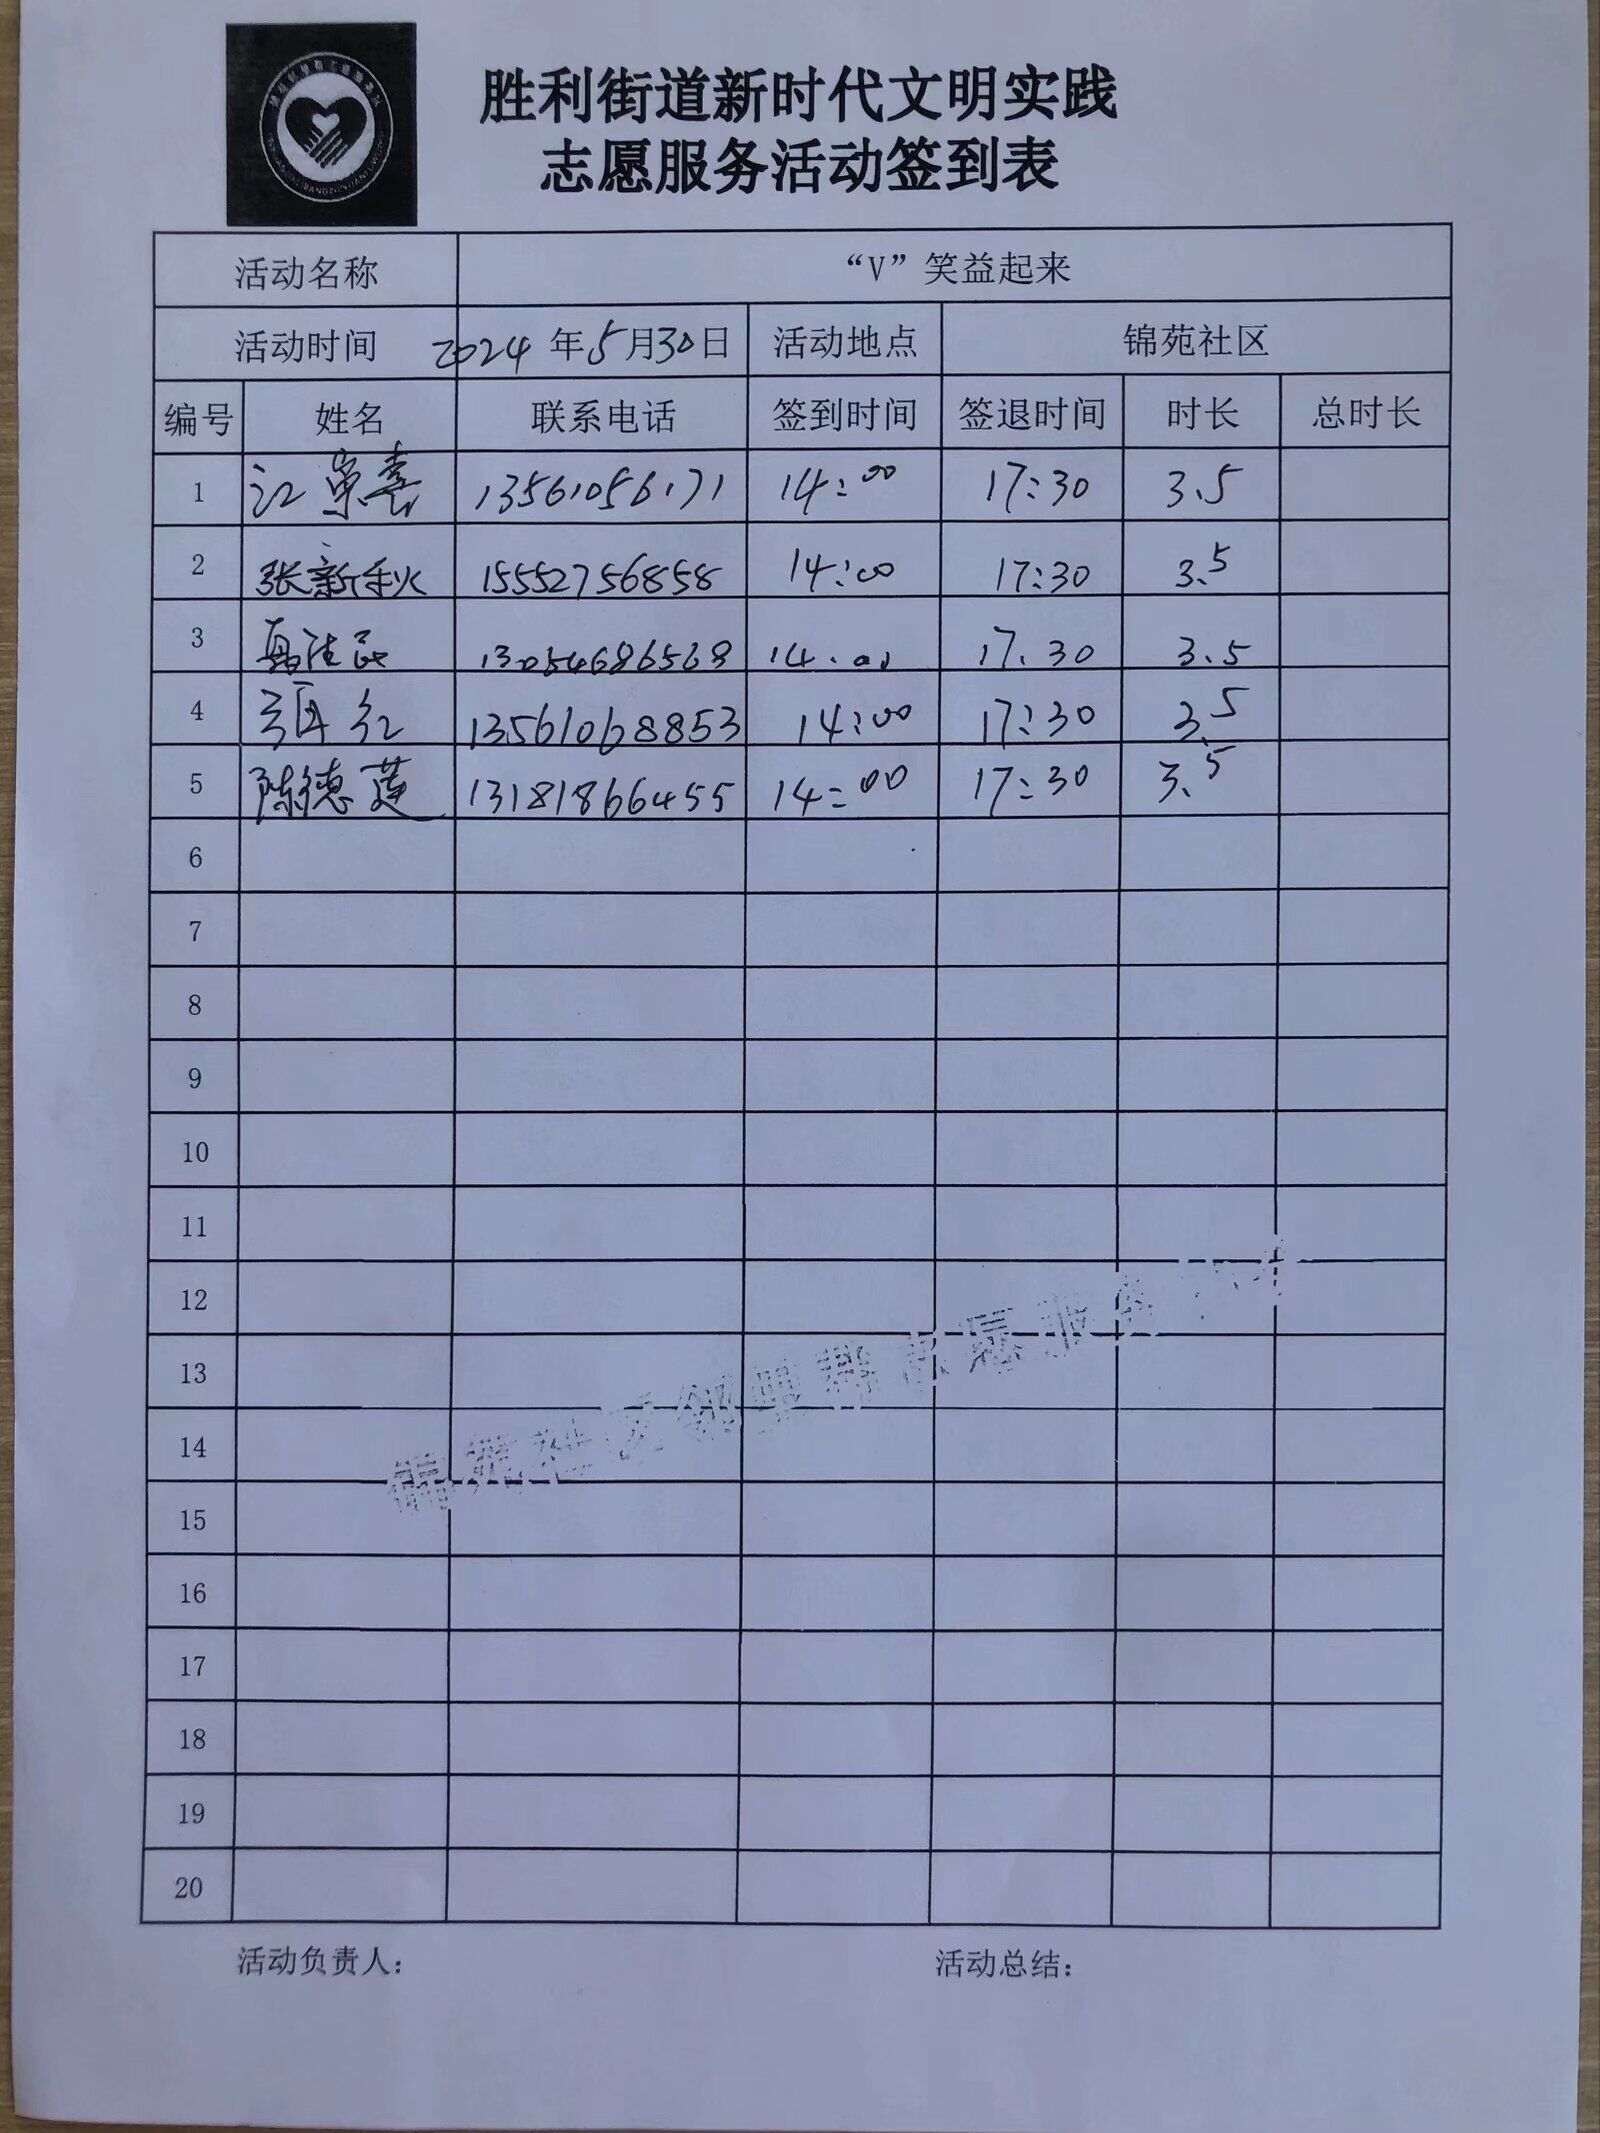 胜利街道新时代文明实践
志愿服务活动签到表
活动名称 “V”笑益起来
活动时间 2024年5月30日 活动地点 锦苑社区
编号 姓名 联系电话 签到时间 签退时间 时长 总时长
1 江荣喜 13561056171 14:00 17:30 3.5
2 张新秋 15552756858 14:00 17:30 3.5
3 13054686568 14.00 17.30 3.5
4 张红 13561068853 14:00 17:30 3.5
5 陈德莲 13181866455 14:00 17:30 3.5
6
7
8
9
10
11
12
13
14
15
16
17
18
19
20
锦苑社区邻里帮志愿服务
活动负责人: 活动总结: